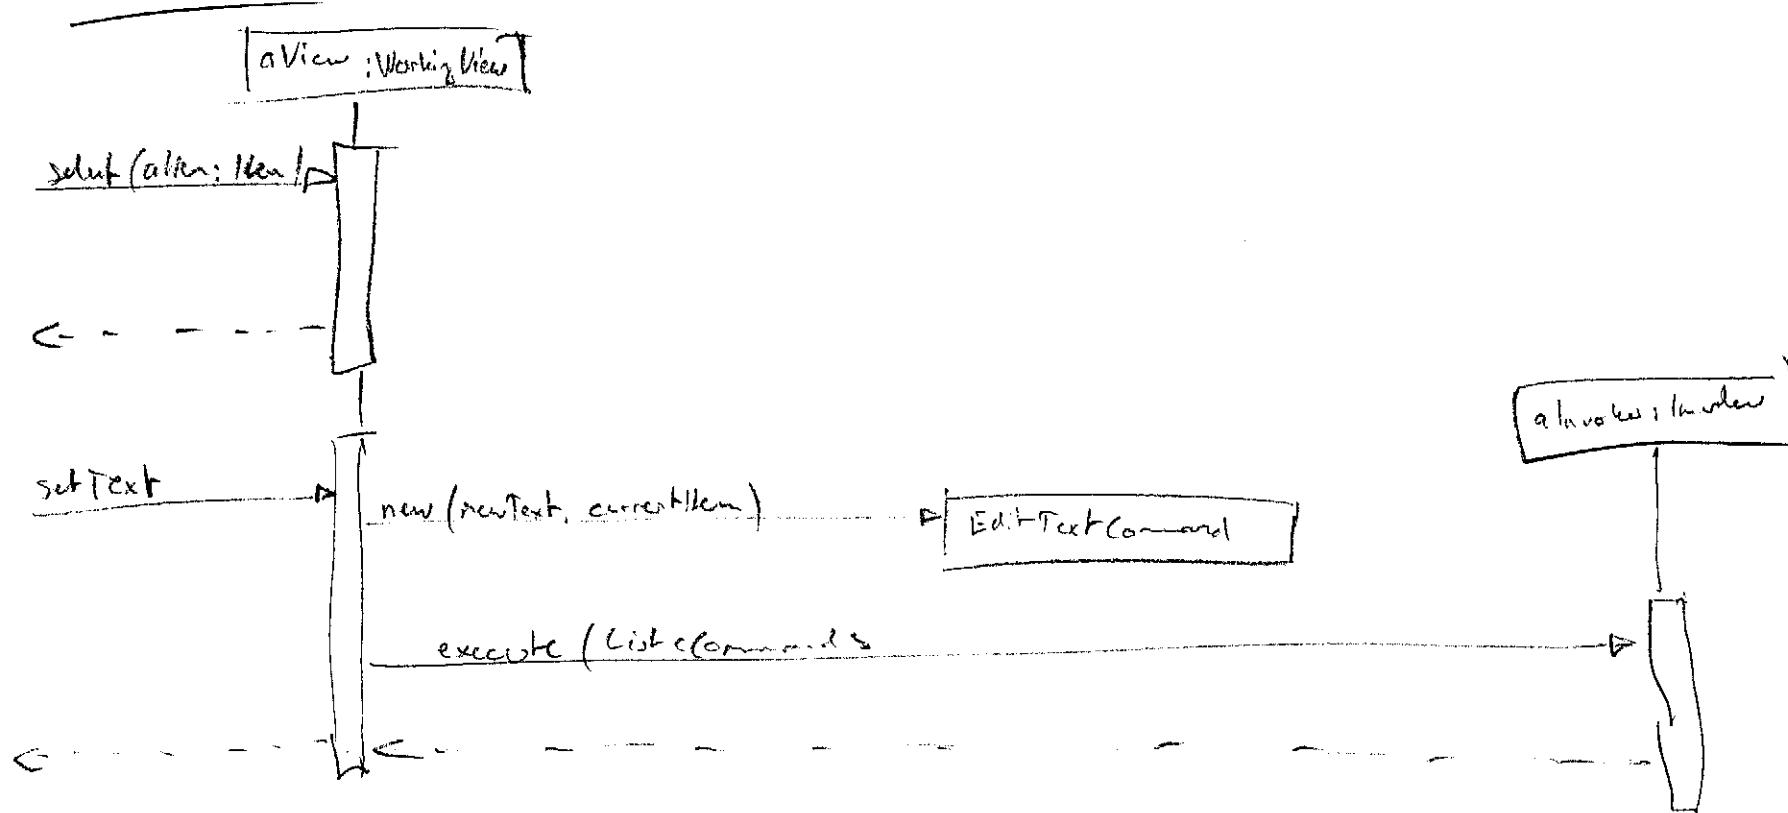 aView :WorkingView
select(aItem: Item)
aInvoker: Invoker
setText
new (newText, currentItem)
EditTextCommand
execute (List<Command>